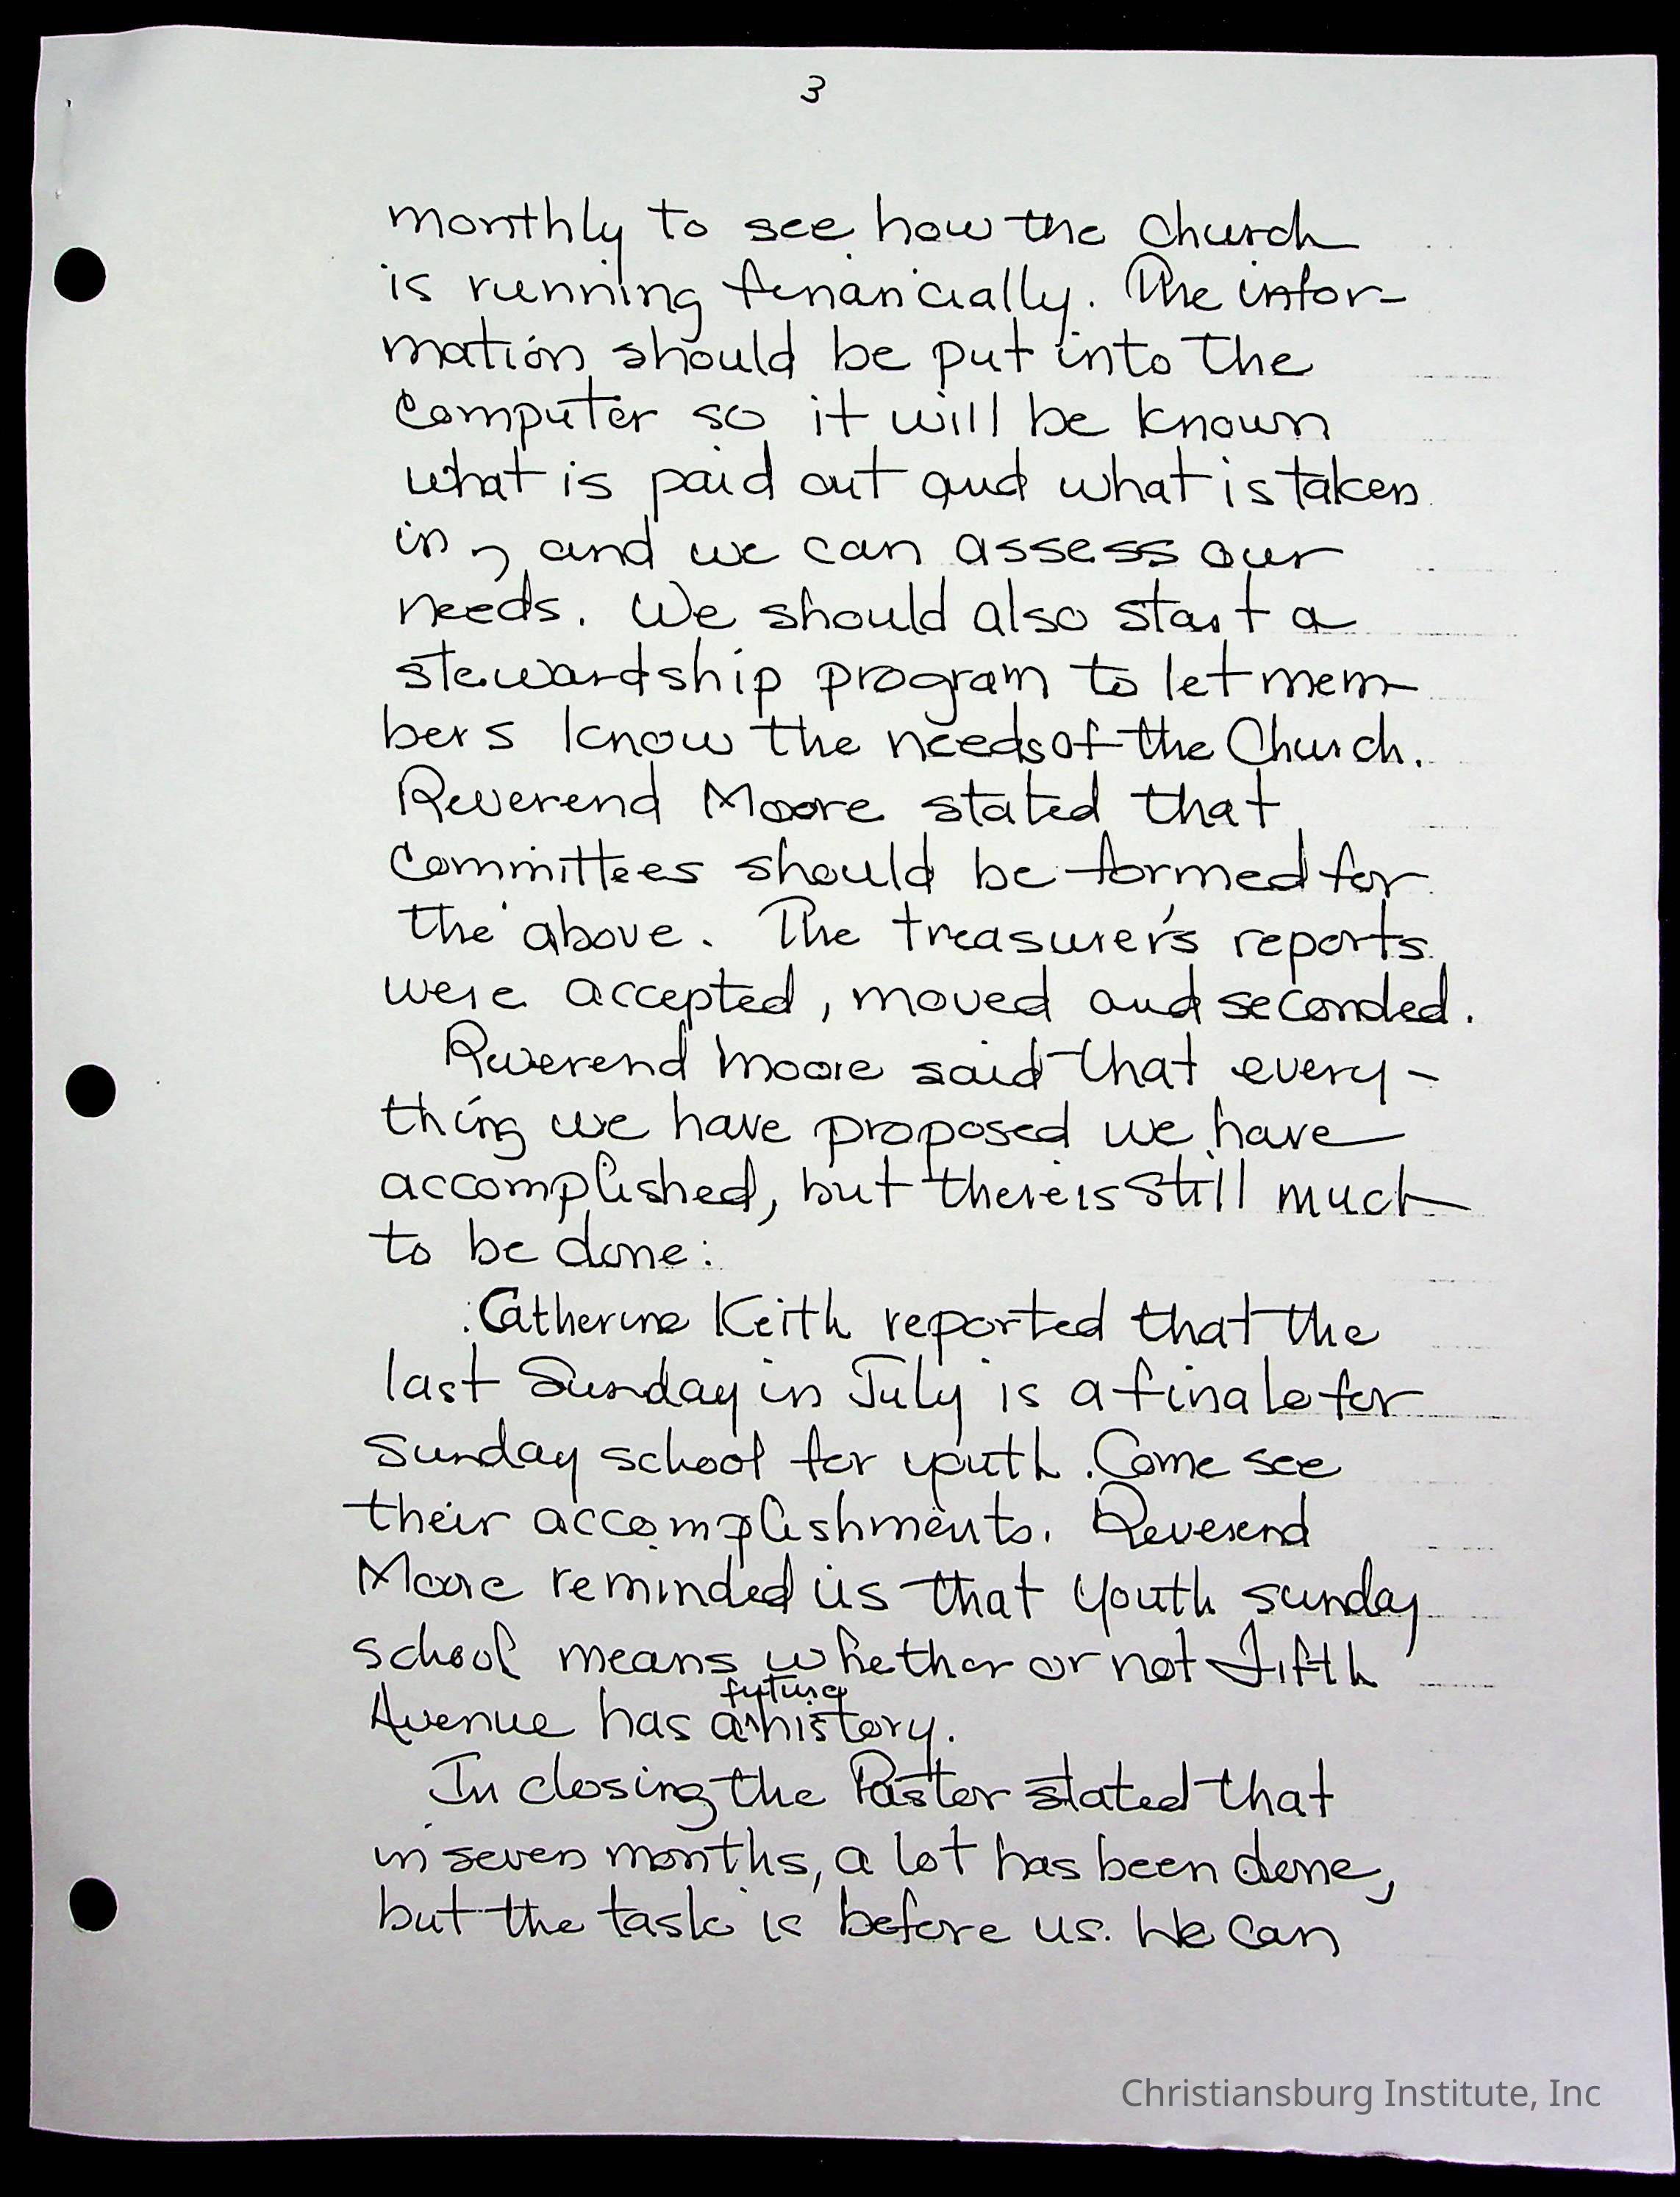 3
monthly to see how the church
is running financially. The infor-
mation should be put into the
computer so it will be known
what is paid out and what is taken
in, and we can assess our
needs. We should also start a
stewardship program to let mem-
bers know the needs of the Church.
Reverend Moore stated that
committees should be formed for
the above. The treasurer's reports
were accepted, moved and seconded.
Reverend Moore said that every-
thing we have proposed we have
accomplished, but there is still much
to be done:
Catherine Keith reported that the
last Sunday in July is a finale for
Sunday school for youth. Come see
their accomplishments. Reverend
Moore reminded us that youth sunday
school means whether or not Fifth
future
Avenue has a^history.
In closing the Pastor stated that
in seven months, a lot has been done,
but the task is before us. We can
Christiansburg Institute, Inc